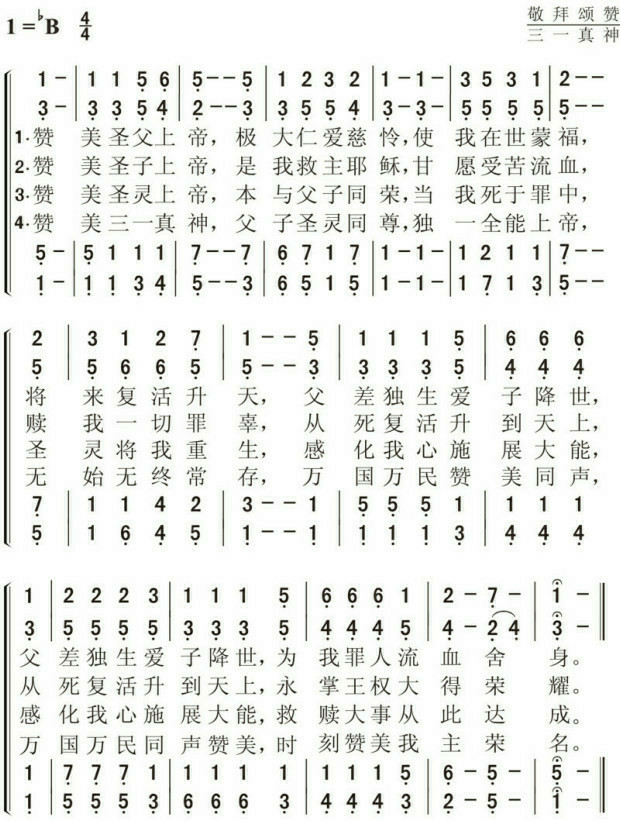 1=♭B 4/4
敬拜颂赞
三一真神
1 - | 1 1 5̣ 6̣ | 5̣ - - 5̣ | 1 2 3 2 | 1 - 1 - | 3 5 3 1 | 2 - -
3̣ - | 3̣ 3̣ 5̣ 4̣ | 2̣ - - 3̣ | 3̣ 5̣ 5̣ 4̣ | 3̣ - 3̣ - | 5̣ 5̣ 5̣ 5̣ | 5̣ - -
1·赞 美圣父上帝，极 大仁爱慈怜，使 我在世蒙福，
2·赞 美圣子上帝，是 我救主耶稣，甘 愿受苦流血，
3·赞 美圣灵上帝，本 与父子同荣，当 我死于罪中，
4·赞 美三一真神，父 子圣灵同尊，独 一全能上帝，
5̣ - | 5̣ 1 1 1 | 7̣ - - 7̣ | 6̣ 7̣ 1 7̣ | 1 - 1 - | 1 2 1 1 | 7̣ - -
1̣ - | 1̣ 1̣ 3̣ 4̣ | 5̣ - - 3̣ | 6̣ 5̣ 1̣ 5̣ | 1̣ - 1̣ - | 1 7̣ 1 3̣ | 5̣ - -
2 | 3 1 2 7̣ | 1 - - 5̣ | 1 1 1 5̣ | 6̣ 6̣ 6̣
5̣ | 5̣ 6̣ 6̣ 5̣ | 5̣ - - 3̣ | 3̣ 3̣ 3̣ 5̣ | 4̣ 4̣ 4̣
将 来复活升天，父 差独生爱子降世，
赎 我一切罪辜，从 死复活升到天上，
圣 灵将我重生，感 化我心施展大能，
无 始无终常存，万 国万民赞美同声，
7̣ | 1 1 4 2 | 3 - - 1 | 5̣ 5̣ 5̣ 1 | 1 1 1
5̣ | 1 6̣ 4̣ 5̣ | 1̣ - - 1̣ | 1̣ 1̣ 1̣ 3̣ | 4̣ 4̣ 4̣
1 | 2 2 2 3 | 1 1 1 5̣ | 6̣ 6̣ 6̣ 1 | 2 - 7̣ - | 1 - ‖
3̣ | 5̣ 5̣ 5̣ 5̣ | 3̣ 3̣ 3̣ 5̣ | 4̣ 4̣ 4̣ 5̣ | 4̣ - 2̣ 4̣ | 3̣ - ‖
父 差独生爱子降世，为 我罪人流血舍身。
从 死复活升到天上，永 掌王权大得荣耀。
感 化我心施展大能，救 赎大事从此达成。
万 国万民同声赞美，时 刻赞美我主荣名。
1 | 7̣ 7̣ 7̣ 1 | 1 1 1 1 | 1 1 1 5̣ | 6̣ - 5̣ - | 5̣ - ‖
1̣ | 5̣ 5̣ 5̣ 3̣ | 6̣ 6̣ 6̣ 3̣ | 4̣ 4̣ 4̣ 3̣ | 2̣ - 5̣ - | 1̣ - ‖